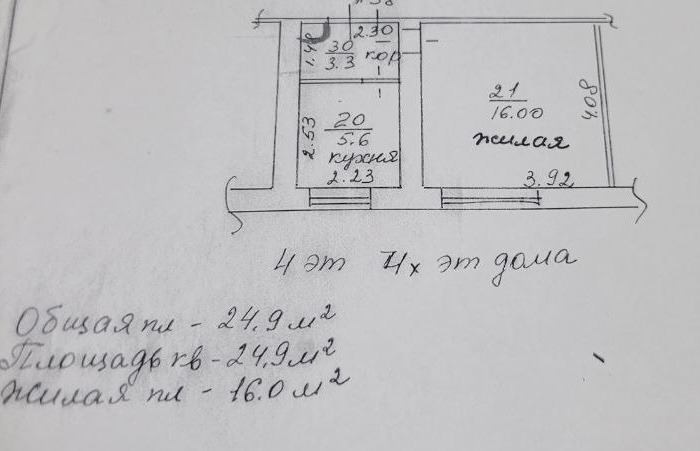 2.30
1.48
30
3.3
кор
21
16.00
жилая
4.08
2.53
20
5.6
кухня
2.23
3.92
4 эт 4х эт дома
Общая пл - 24,9 м²
Площадь кв - 24,9 м²
Жилая пл - 16.0 м²